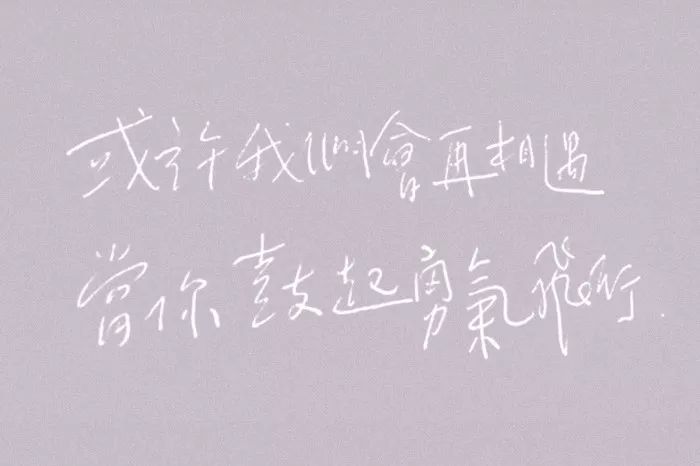 或许我們會再相遇
當你鼓起勇氣飛行.